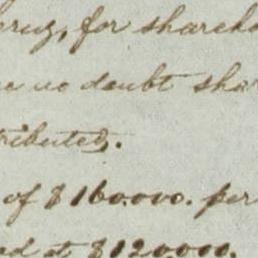 cruz, for shareho
e no doubt shar
tributed.
of $160.000. per
ed at $120,000.